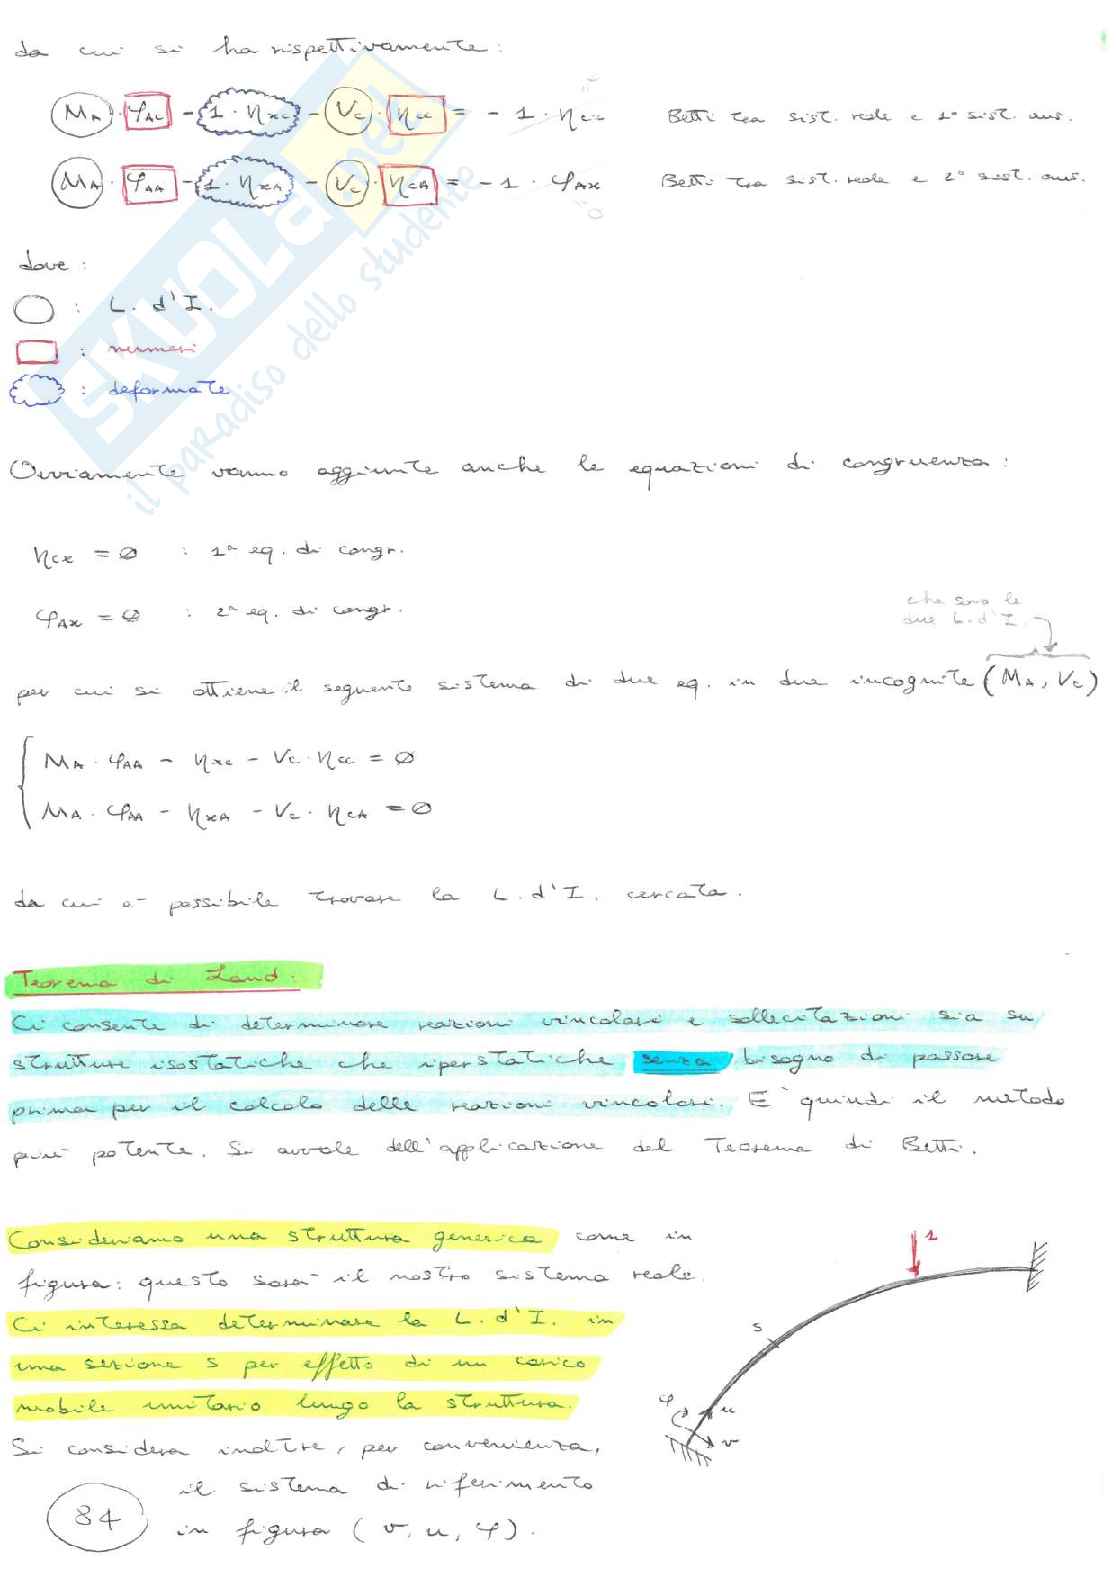 da cui si ha rispettivamente:
M_A · φ_AC - 1 · η_xc - V_C · η_cc = - 1 · η_cx Betti tra sist. reale e 1° sist. aus.
M_A · φ_AA - 1 · η_xA - V_C · η_CA = - 1 · φ_Ax Betti tra sist. reale e 2° sist. aus.
dove:
: L. d'I.
: numeri
: deformate
Ovviamente vanno aggiunte anche le equazioni di congruenza:
η_cx = ∅ : 1ª eq. di congr.
φ_Ax = ∅ : 2ª eq. di congr.
che sono le
due L. d'I.
per cui si ottiene il seguente sistema di due eq. in due incognite (M_A, V_C)
M_A · φ_AA - η_xc - V_C · η_cc = ∅
M_A · φ_AA - η_xA - V_C · η_CA = ∅
da cui è possibile trovare la L. d'I. cercata.
Teorema di Land:
Ci consente di determinare reazioni vincolari e sollecitazioni sia su
strutture isostatiche che iperstatiche senza bisogno di passare
prima per il calcolo delle reazioni vincolari. E' quindi il metodo
più potente. Si avvale dell'applicazione del Teorema di Betti.
Consideriamo una struttura generica come in
figura: questo sarà il nostro sistema reale.
Ci interessa determinare la L. d'I. in
una sezione s per effetto di un carico
mobile unitario lungo la struttura.
Si considera inoltre, per convenienza,
il sistema di riferimento
in figura (v, u, φ).
1
s
φ
u
v
84
SKUOLA.net
il paradiso dello studente